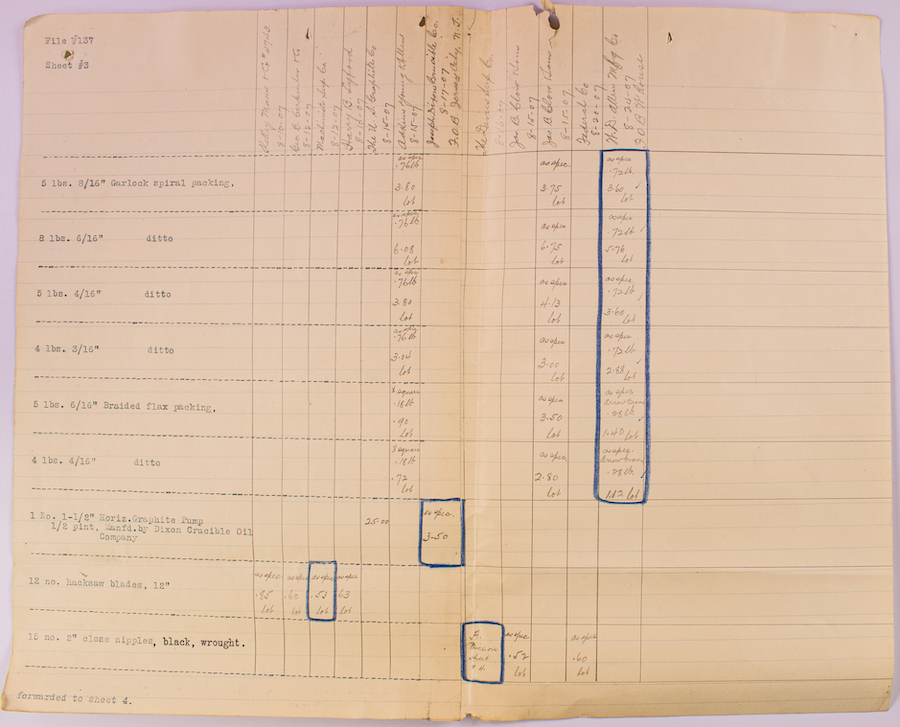 File #137
Sheet #3
8-12-07
Harry C.
The U. S. Graphite Co
8-15-07
8-15-07
Joseph Dixon Crucible Co.
8-17-07
F.O.B. Jersey City, N. J.
Jas. B. Clow Sons
8-15-07
Jas. B. Clow Sons
8-15-07
Federal Co
8-20-07
W. D. Allen Mfg Co
8-20-07
F.O.B. W House
5 lbs. 8/16" Garlock spiral packing,
as spec .76 lb 3.80 lot
as spec 3.75 lot
as spec .72 lb 3.60 lot
8 lbs. 6/16" ditto
as spec .76 lb 6.08 lot
as spec 6.75 lot
as spec .72 lb 5.76 lot
5 lbs. 4/16" ditto
as spec .76 lb 3.80 lot
as spec 4.13 lot
as spec .72 lb 3.60 lot
4 lbs. 3/16" ditto
as spec .76 lb 3.04 lot
as spec 3.00 lot
as spec .72 lb 2.88 lot
5 lbs. 6/16" Braided flax packing,
square .18 lb .90 lot
as spec 3.50 lot
as spec .28 lb 1.40 lot
4 lbs. 4/16" ditto
square .18 lb .72 lot
as spec 2.80 lot
as spec .28 lb 1.12 lot
1 No. 1-1/2" Horiz.Graphite Pump
1/2 pint, Manfd.by Dixon Crucible Oil
Company
25.00
as spec. 3.50
12 no. hacksaw blades, 12"
as spec .85 lot
as spec .60 lot
as spec .53 lot
as spec .63 lot
15 no. 2" close nipples, black, wrought.
sheet
as spec .52 lot
as spec .60 lot
forwarded to sheet 4.